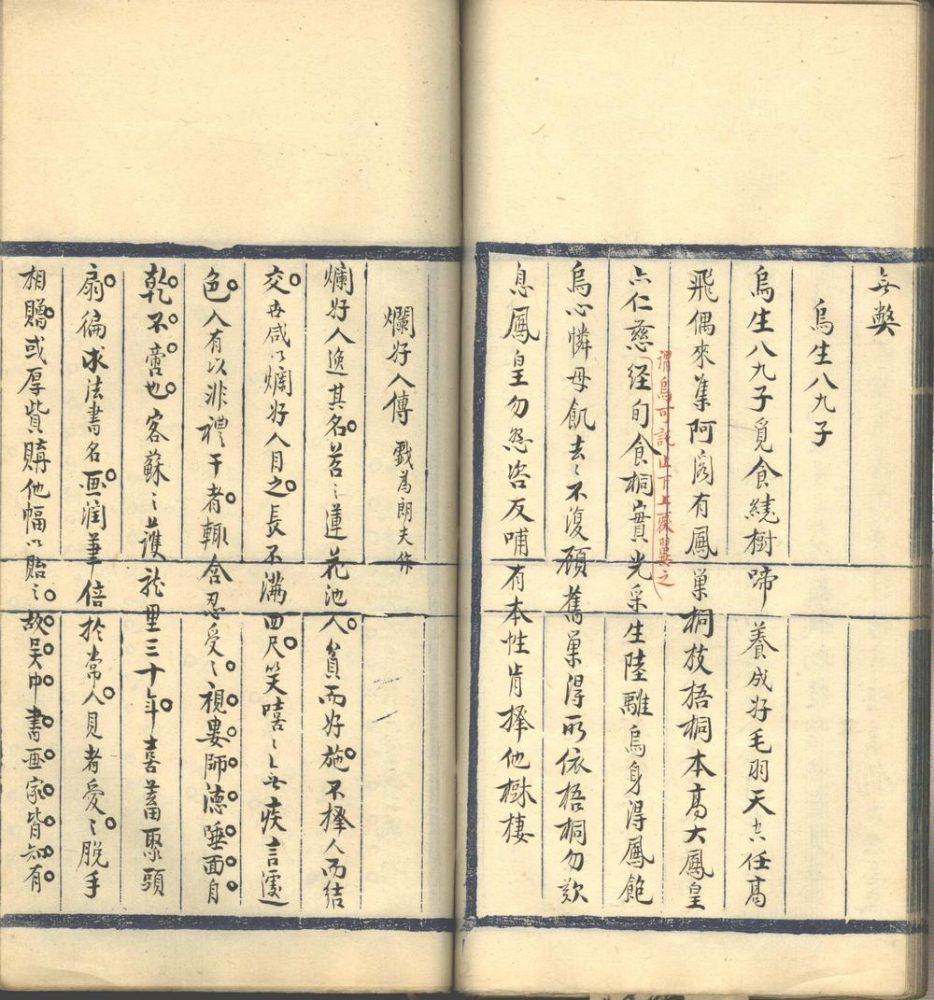 無弊
烏生八九子
烏生八九子覓食繞樹啼養成好毛羽天空任高
飛偶來集阿閣有鳳巢桐枝梧桐本高大鳳皇
亦仁慈經旬食桐實光采生陸離烏身得鳳飽
謂烏可託止下上裒翼之
烏心憐母飢去〻不復顧舊巢得所依梧桐勿歎
息鳳皇勿怨咨反哺有本性肯擇他樹棲
爛好人傳 戲為朗夫作
爛好人逸其名苕之蓮花池人貧而好施不擇人而結
交世咸以爛好人目之長不滿四尺笑嘻〻無疾言遽
色人有以非禮干者輒含忍受之視婁師德唾面自
乾不啻也客蘇之護龍里三十年喜蓄聚頭
扇徧求法書名画潤筆倍於常人見者愛之脫手
相贈或厚貲購他幅以貽之故吳中書画家皆知有